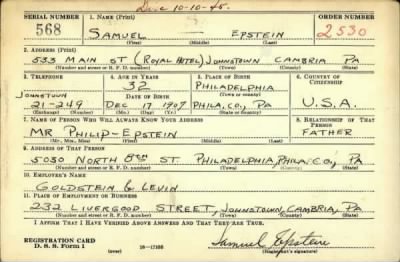 Dec 10-10-45.
SERIAL NUMBER 1. NAME (Print) ORDER NUMBER
568 SAMUEL EPSTEIN 2530
(First) (Middle) (Last)
2. ADDRESS (Print)
533 MAIN ST (ROYAL HOTEL) JOHNSTOWN CAMBRIA PA
(Number and street or R. F. D. number) (Town) (County) (State)
3. TELEPHONE 4. AGE IN YEARS 5. PLACE OF BIRTH 6. COUNTRY OF CITIZENSHIP
32 PHILADELPHIA
JOHNSTOWN DATE OF BIRTH (Town or county)
21-249 DEC 17 1907 PHILA, CO., PA U.S.A.
(Exchange) (Number) (Mo.) (Day) (Yr.) (State or country)
7. NAME OF PERSON WHO WILL ALWAYS KNOW YOUR ADDRESS 8. RELATIONSHIP OF THAT PERSON
MR PHILIP-EPSTEIN FATHER
(Mr., Mrs., Miss) (First) (Middle) (Last)
9. ADDRESS OF THAT PERSON
5030 NORTH 8TH ST. PHILADELPHIA, PHILA CO., PA
(Number and street or R. F. D. number) (Town) (County) (State)
10. EMPLOYER'S NAME
GOLDSTEIN & LEVIN
11. PLACE OF EMPLOYMENT OR BUSINESS
232 LIVERGOOD STREET, JOHNSTOWN, CAMBRIA, PA
(Number and street or R. F. D. number) (Town) (County) (State)
I AFFIRM THAT I HAVE VERIFIED ABOVE ANSWERS AND THAT THEY ARE TRUE.
REGISTRATION CARD
D. S. S. Form 1 (over) 16-17105 Samuel Epstein
(Registrant's signature)